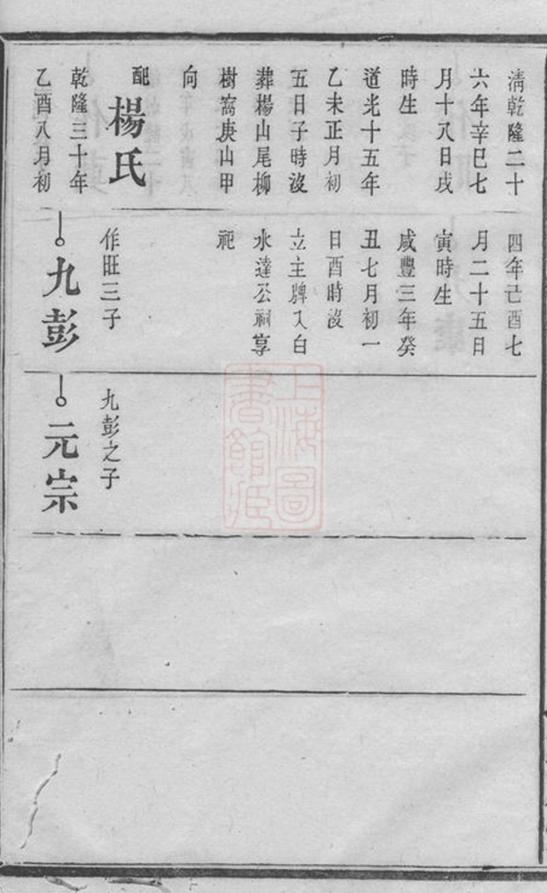 清乾隆二十
六年辛巳七
月十八日戌
時生
道光十五年
乙未正月初
五日子時沒
葬楊山尾柳
樹窩庚山甲
向
配楊氏
乾隆三十年
乙酉八月初
四年己酉七
月二十五日
寅時生
咸豐三年癸
丑七月初一
日酉時沒
立主牌入白
水達公祠享
祀
作旺三子
九彭
九彭之子
元宗
上海圖書館藏